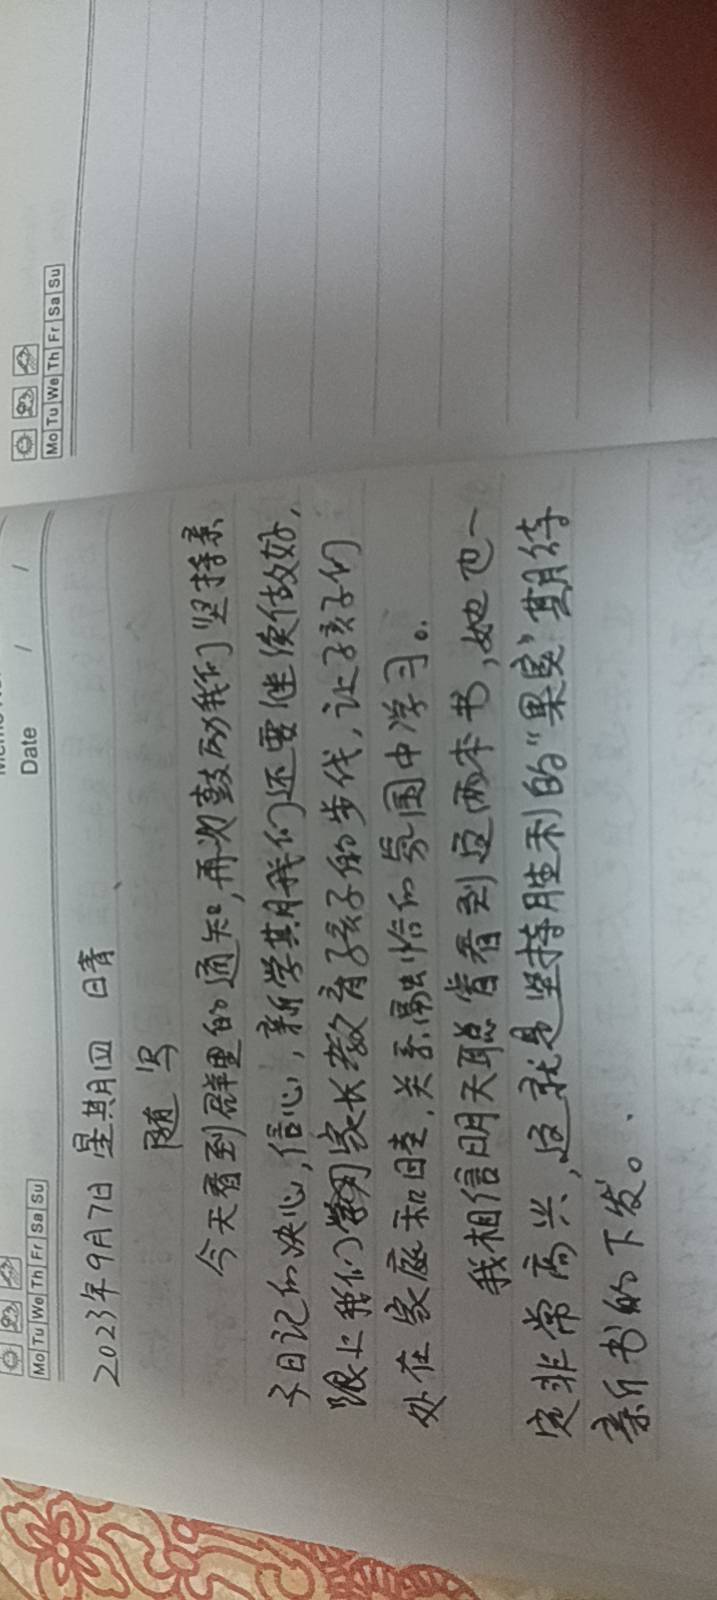 Mo Tu We Th Fr Sa Su
Date / /
2023年9月7日 星期四 晴
随写
今天看到群里的通知,再次鼓励我们坚持亲
子日记的决心,信心,新学期我们还要继续做好,
跟上我们学习家长教育孩子的步伐,让孩子们
处在家庭和睦,关系融恰的氛围中学习。
我相信明天聪肯看到这两本书,她也一
定非常高兴,这就是坚持胜利的“果实”期待
新书的下发。
Mo Tu We Th Fr Sa Su